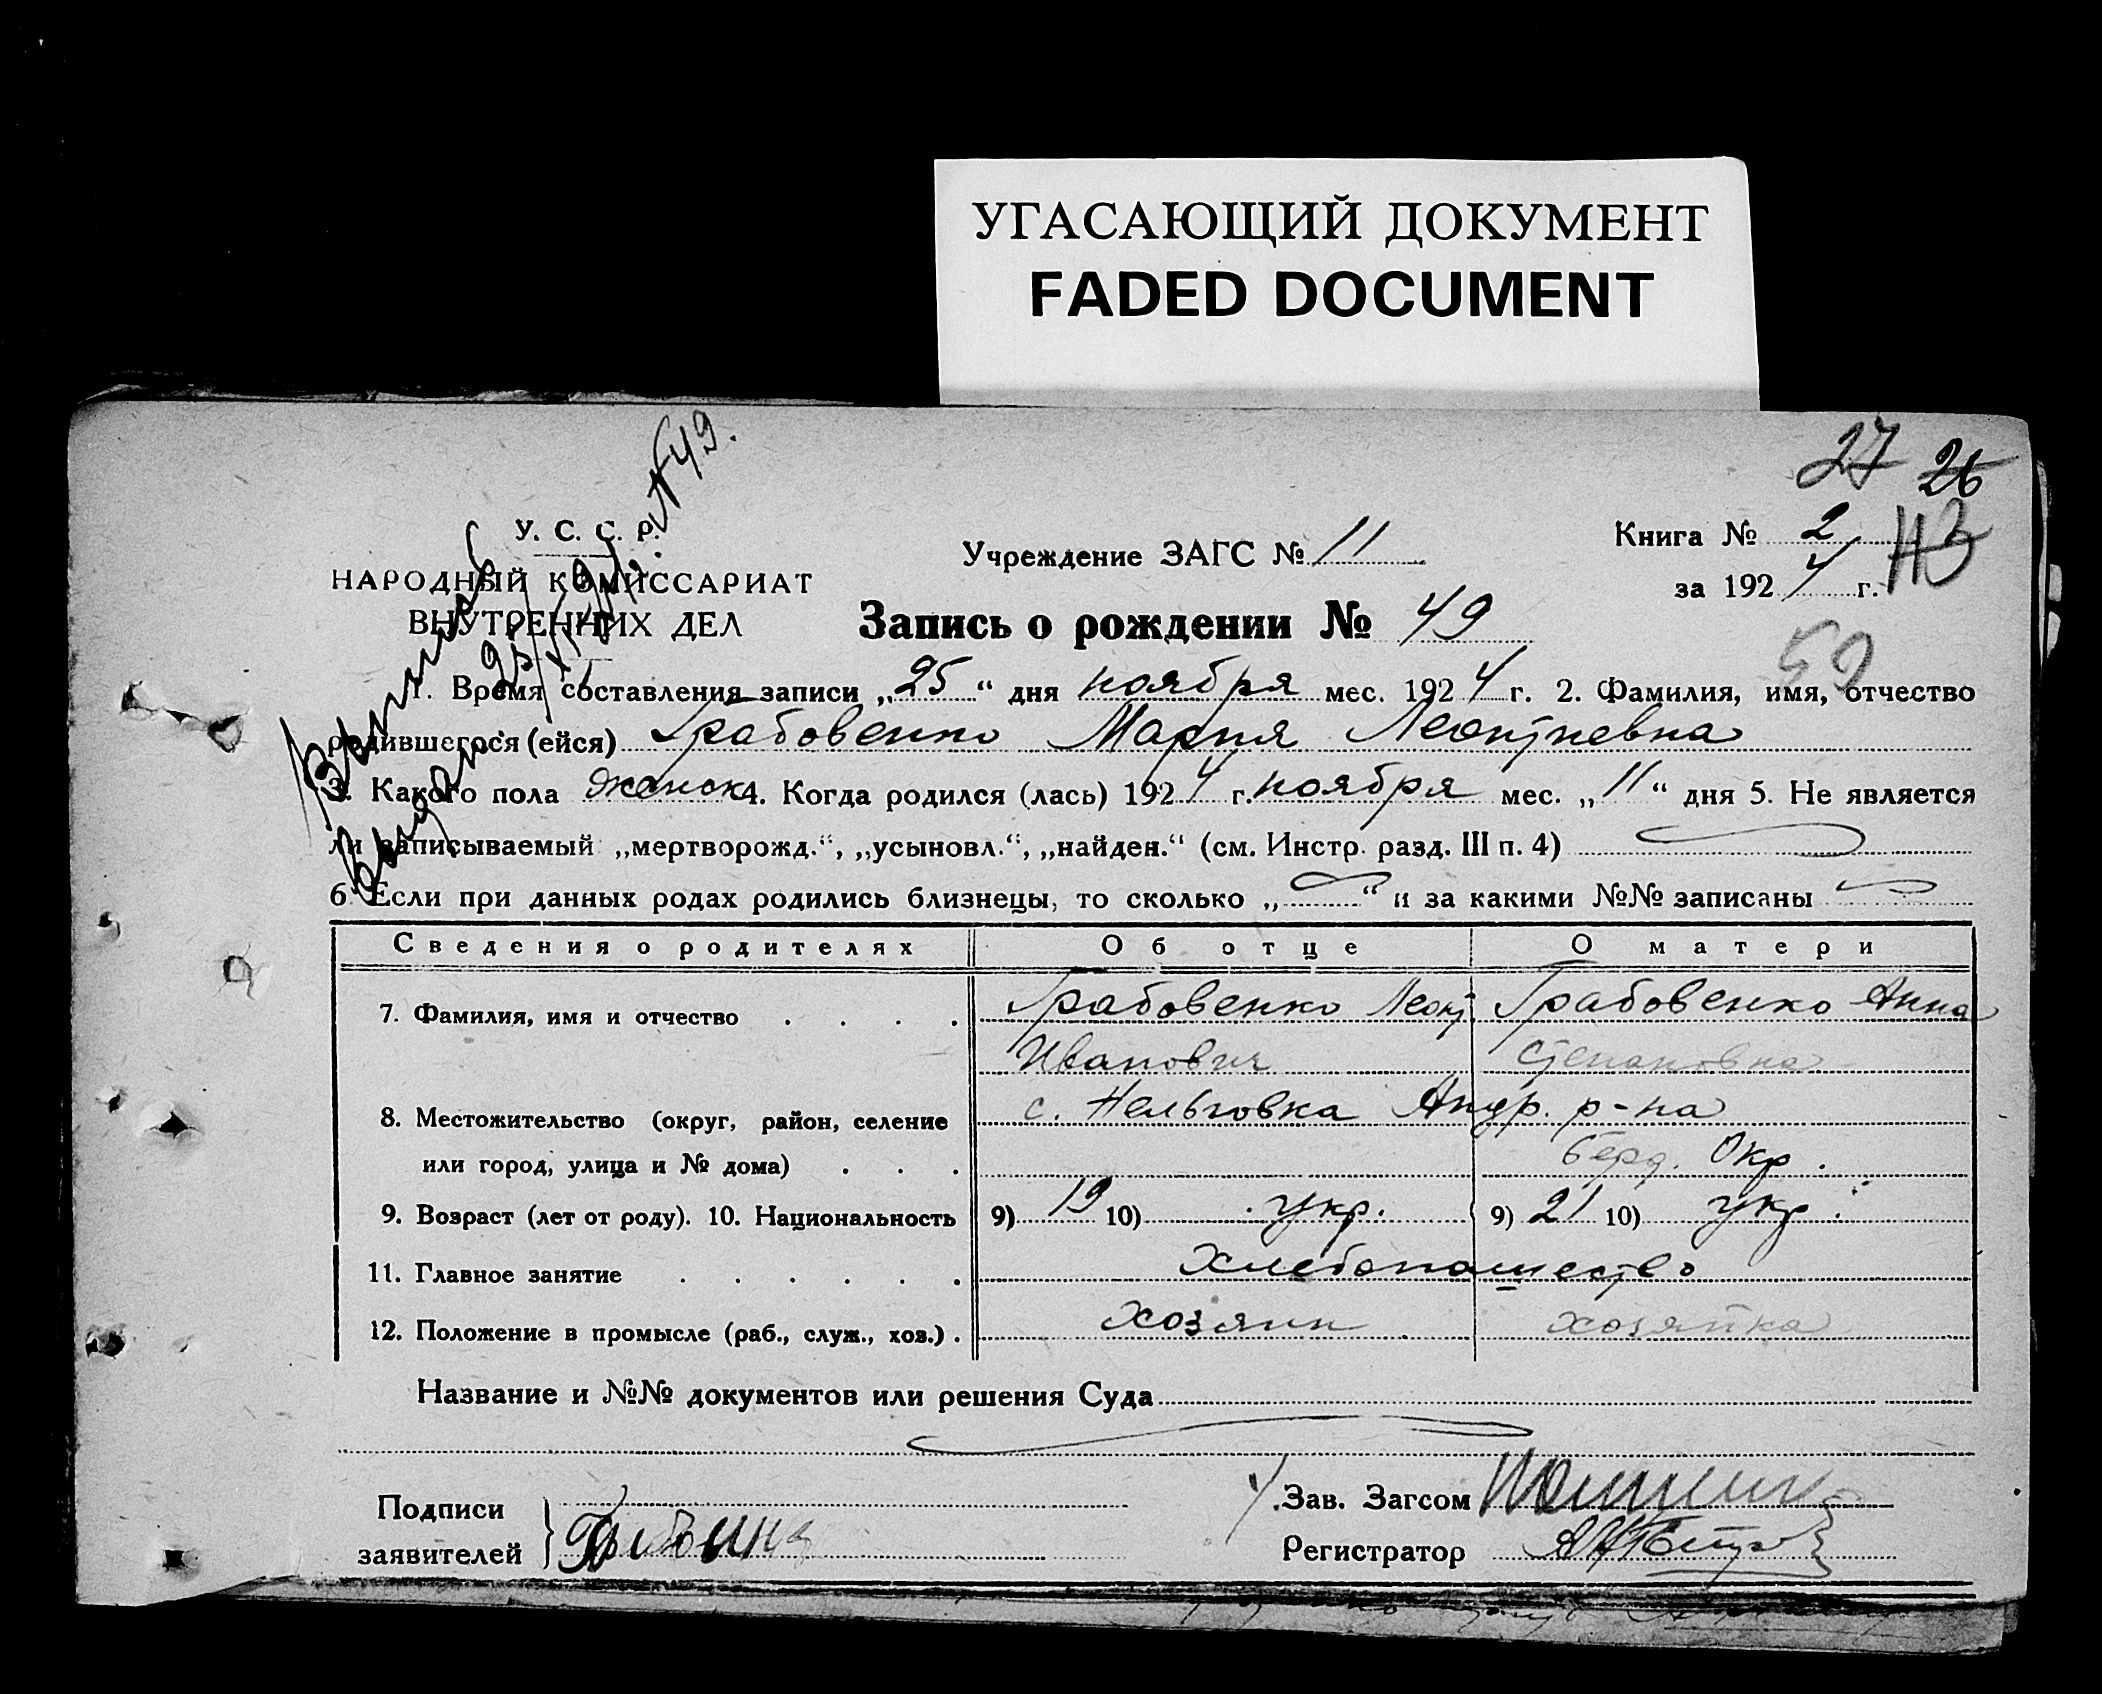 УГАСАЮЩИЙ ДОКУМЕНТ
FADED DOCUMENT
27 26
У. С. С. Р.
НАРОДНЫЙ КОМИССАРИАТ
ВНУТРЕННИХ ДЕЛ
Выпись выдан. 25/XI 24 г. № 49.
Учреждение ЗАГС № 11
Книга № 2
за 1924 г.
113
Запись о рождении № 49
59
1. Время составления записи „25“ дня ноября мес. 1924 г. 2. Фамилия, имя, отчество
родившегося (ейся) Грабовенко Мария Леонтиевна
3. Какого пола женск 4. Когда родился (лась) 1924 г. ноября мес. „11“ дня 5. Не является
ли записываемый „мертворожд.“, „усыновл.“, „найден.“ (см. Инстр. разд. III п. 4)
6. Если при данных родах родились близнецы, то сколько „ “ и за какими №№ записаны
Сведения о родителях Об отце О матери
7. Фамилия, имя и отчество . . . . Грабовенко Леонт. Грабовенко Анна
Иванович Степановна
8. Местожительство (округ, район, селение с. Нельговка Андр. р-на
или город, улица и № дома) . . . Берд. Окр.
9. Возраст (лет от роду). 10. Национальность 9) 19 10) укр. 9) 21 10) укр.
11. Главное занятие . . . . . . Хлебопашество
12. Положение в промысле (раб., служ., хоз.) . хозяин хозяйка
Название и №№ документов или решения Суда
Подписи
заявителей
Зав. Загсом
Регистратор